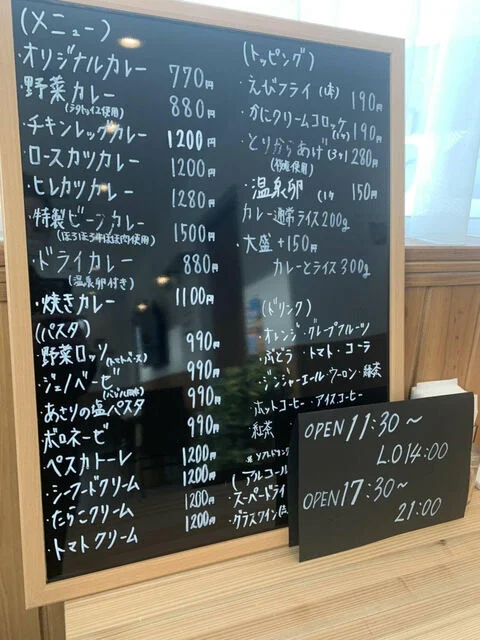 (メニュー)
・オリジナルカレー 770円
野菜カレー 880円
(ラタトゥイユ使用)
・チキンレッグカレー 1200円
・ロースカツカレー 1200円
・ヒレカツカレー 1280円
・特製ビーフカレー 1500円
(ほろほろ牛ほほ肉使用)
・ドライカレー 880円
(温泉卵付き)
・焼きカレー 1100円
(パスタ)
・野菜ロッソ(トマトベース) 990円
・ジェノベーゼ 990円
・あさりの塩パスタ 990円
・ボロネーゼ 990円
・ペスカトーレ 1200円
・シーフードクリーム 1200円
・たらこクリーム 1200円
・トマトクリーム 1200円
(トッピング)
・えびフライ(1本) 190円
・かにクリームコロッケ(1ヶ) 190円
・とりからあげ(3ヶ) 280円
・温泉卵(1ヶ 150円
カレー通常ライス200g
・大盛+150円
カレーとライス300g
(ドリンク)
・オレンジ・グレープフルーツ
・ぶどう・トマト・コーラ
・ジンジャーエール・ウーロン・緑茶
・ホットコーヒー・アイスコーヒー
・紅茶
(アルコール
・スーパードライ
・グラスワイン
OPEN 11:30〜
L.O 14:00
OPEN 17:30〜
21:00